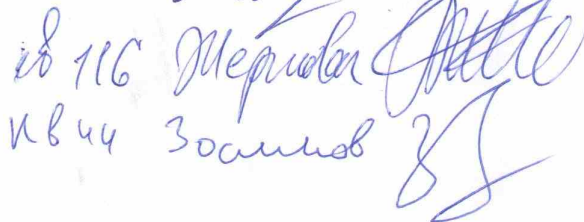 кв 116 Жернова
кв 44 Зосимов